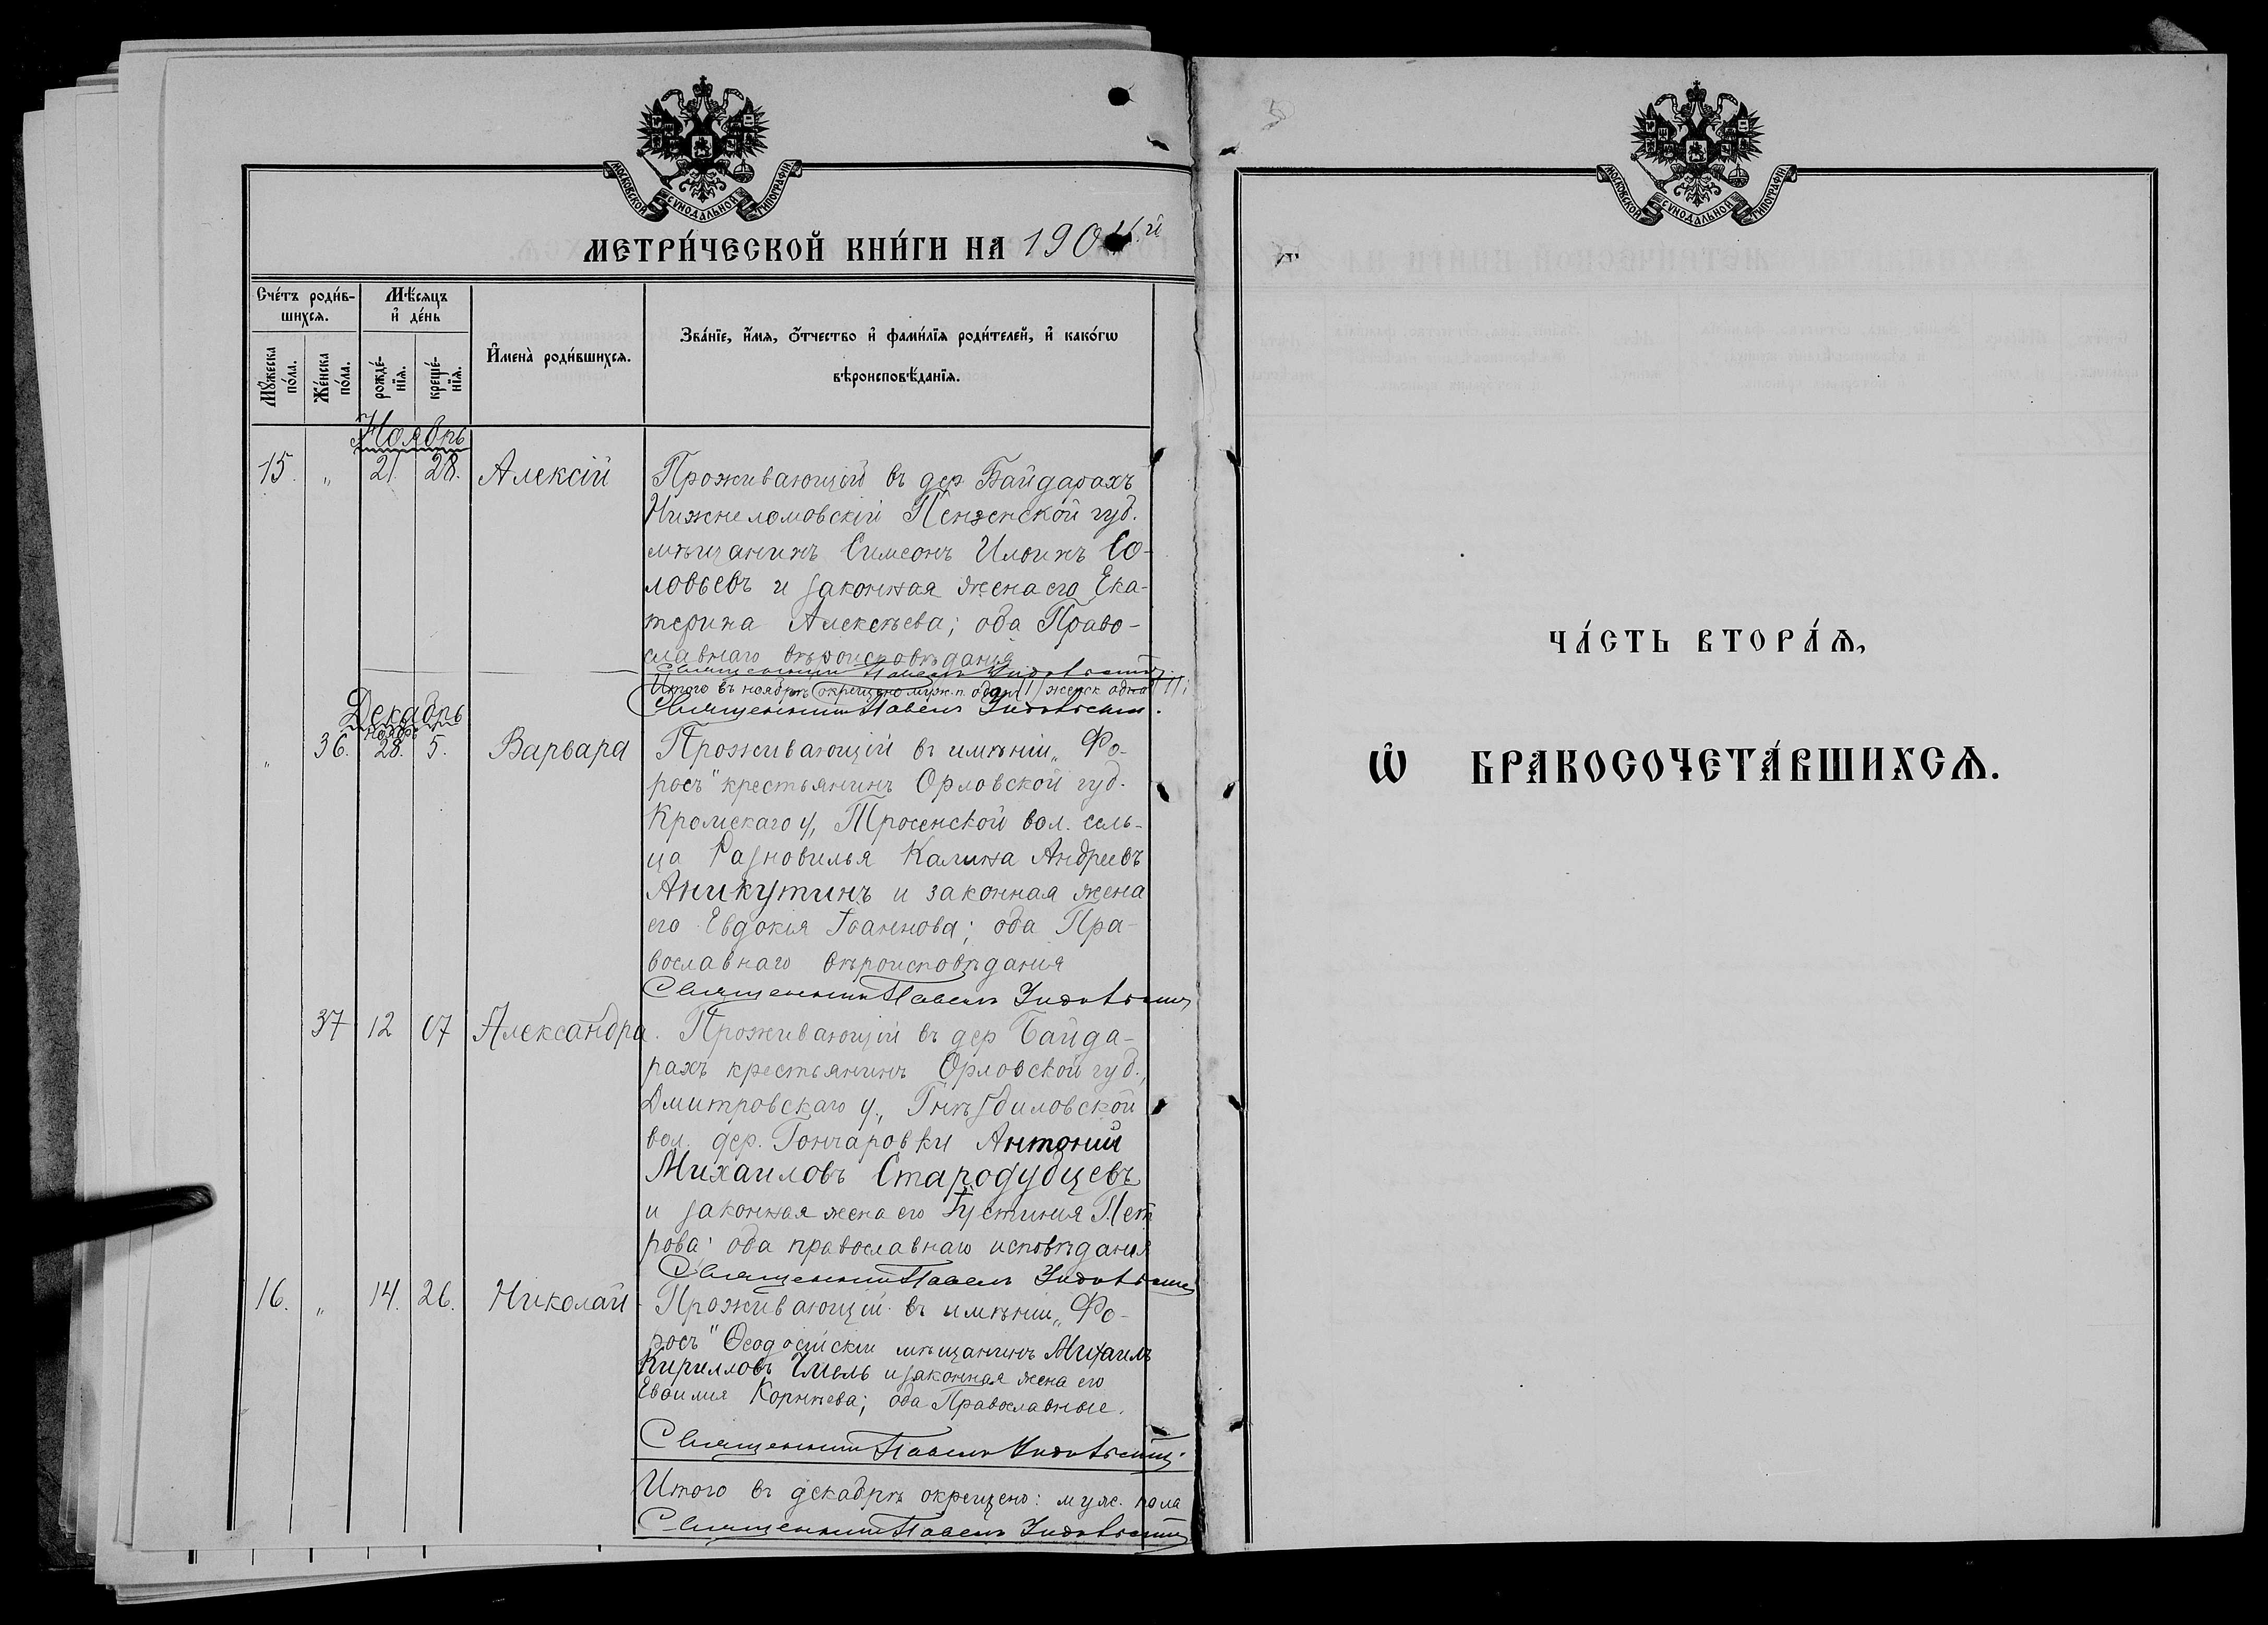 МОСКОВСКОЙ СУНОДАЛЬНОЙ ТИПОГРАФІИ
МЕТРИ́ЧЕСКОЙ КНИ́ГИ НА 190
Сче́тъ роди́в-
шихсѧ.
Мѣ́сѧцъ
и҆ де́нь
Мꙋ́жеска
по́ла.
Же́нска
по́ла.
рожде́-
нїѧ.
креще́-
нїѧ.
И҆мена̀ роди́вшихсѧ.
Зва́нїе, и҆́мѧ, ѻ҆́тчество и҆ фами́лїѧ роди́телей, и҆ како́гѡ
вѣроисповѣ́данїѧ.
Ноябрь
15. " 21. 28. Алексій
Проживающій въ дер Байдарахъ
Нижнеломовскій Пензенской губ.
мѣщанинъ Симеонъ Илоинъ Со-
ловьевъ и законная жена его Ека-
терина Алексѣева; оба Право-
славнаго вѣроисповѣданія
Священникъ Павелъ
Итого въ ноябрѣ окрещено муж. п. одинъ (1) женск одна (1)
Священникъ Павелъ
Декабрь
ноябрь
" 36. 28. 5. Варвара
Проживающій въ имѣніи „Фо-
росъ" крестьянинъ Орловской губ.
Кромскаго у, Тросенской вол. сель-
ца Разновилья Калина Андреевъ
Аникутинъ и законная жена
его Евдокія Іоаннова; оба Пра-
вославнаго вѣроисповѣданія
Священникъ Павелъ
37 12 17 Александра.
Проживающій въ дер Байда-
рахъ крестьянинъ Орловской губ.,
Дмитровскаго у., Гнѣздиловской
вол. дер. Гончаровки Антоній
Михаиловъ Стародубцевъ
и законная жена его Іустинія Пет
рова; оба православнаго исповѣданія
Священникъ Павелъ
16. " 14. 26. Николай
Проживающій въ имѣніи „Фо-
росъ" Ѳеодосійскій мѣщанинъ Михаилъ
Кирилловъ и законная жена его
Евѳимія Корнѣева; оба Православные.
Священникъ Павелъ
Итого въ декабрѣ окрещено: муж. пола
Священникъ Павелъ
МОСКОВСКОЙ СУНОДАЛЬНОЙ ТИПОГРАФІИ
ЧА́СТЬ ВТОРА́Ѧ,
Ѽ БРАКОСОЧЕТА́ВШИХСѦ.